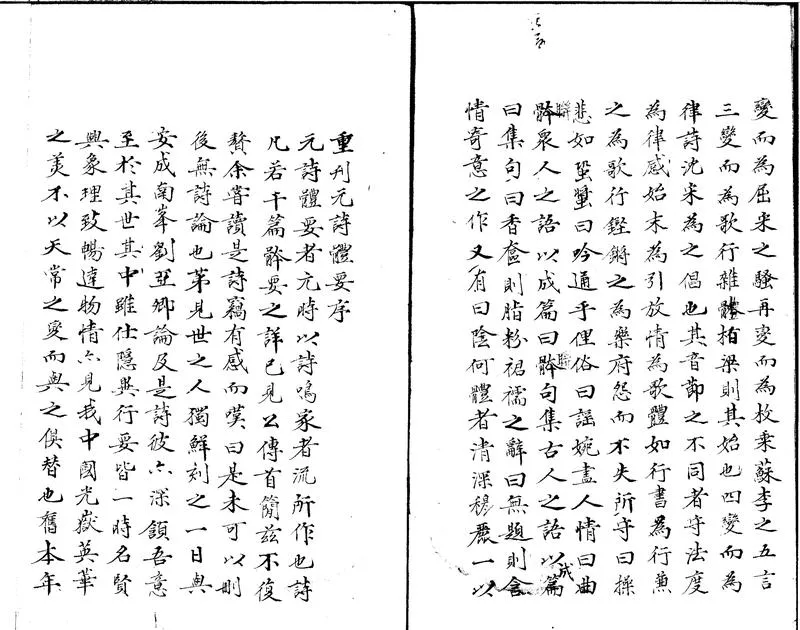 變而為屈宋之騷再變而為枚乘蘇李之五言
三變而為歌行雜體柏梁則其始也四變而為
律詩沈宋為之倡也其音節之不同者守法度
為律感始末為引放情為歌體如行書為行兼
之為歌行鏗鏘之為樂府怨而不失所守曰操
悲如蛩螿曰吟通乎俚俗曰謡婉盡人情曰曲
聨衆人之語以成篇曰聨句集古人之語以成篇
曰集句曰香奩則脂粉裙襦之辭曰無題則含
情寄意之作又有曰陰何體者清深穠麗一以
重刊元詩體要序
元詩體要者元時以詩鳴家者流所作也詩
凡若干篇體要之詳已見公傳首簡茲不復
贅余嘗讀是詩竊有感而嘆曰是未可以刪
後無詩論也第見世之人獨鮮刻之一日與
安成南峯劉亞卿論及是詩彼亦深領吾意
至於其世其中雖仕隱異行要皆一時名賢
興象理致暢達物情亦見我中國光嶽英華
之美不以天常之變而與之俱替也舊本年